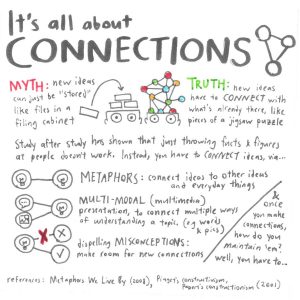 It's all about
CONNECTIONS
MYTH: new ideas
can just be "stored"
like files in a
filing cabinet
TRUTH: new ideas
have to CONNECT with
what's already there, like
pieces of a jigsaw puzzle
Study after study has shown that just throwing facts & figures
at people doesn't work. Instead, you have to CONNECT ideas, via...
METAPHORS: connect ideas to other ideas
and everyday things
MULTI-MODAL (multimedia)
presentation, to connect multiple ways
of understanding a topic. (eg words
& pics)
dispelling MISCONCEPTIONS:
make room for new connections
& once
you make
connections,
how do you
maintain 'em?
well, you have to...
references: Metaphors We Live By (2008), Piaget's constructivism,
Papert's constructionism (2001)